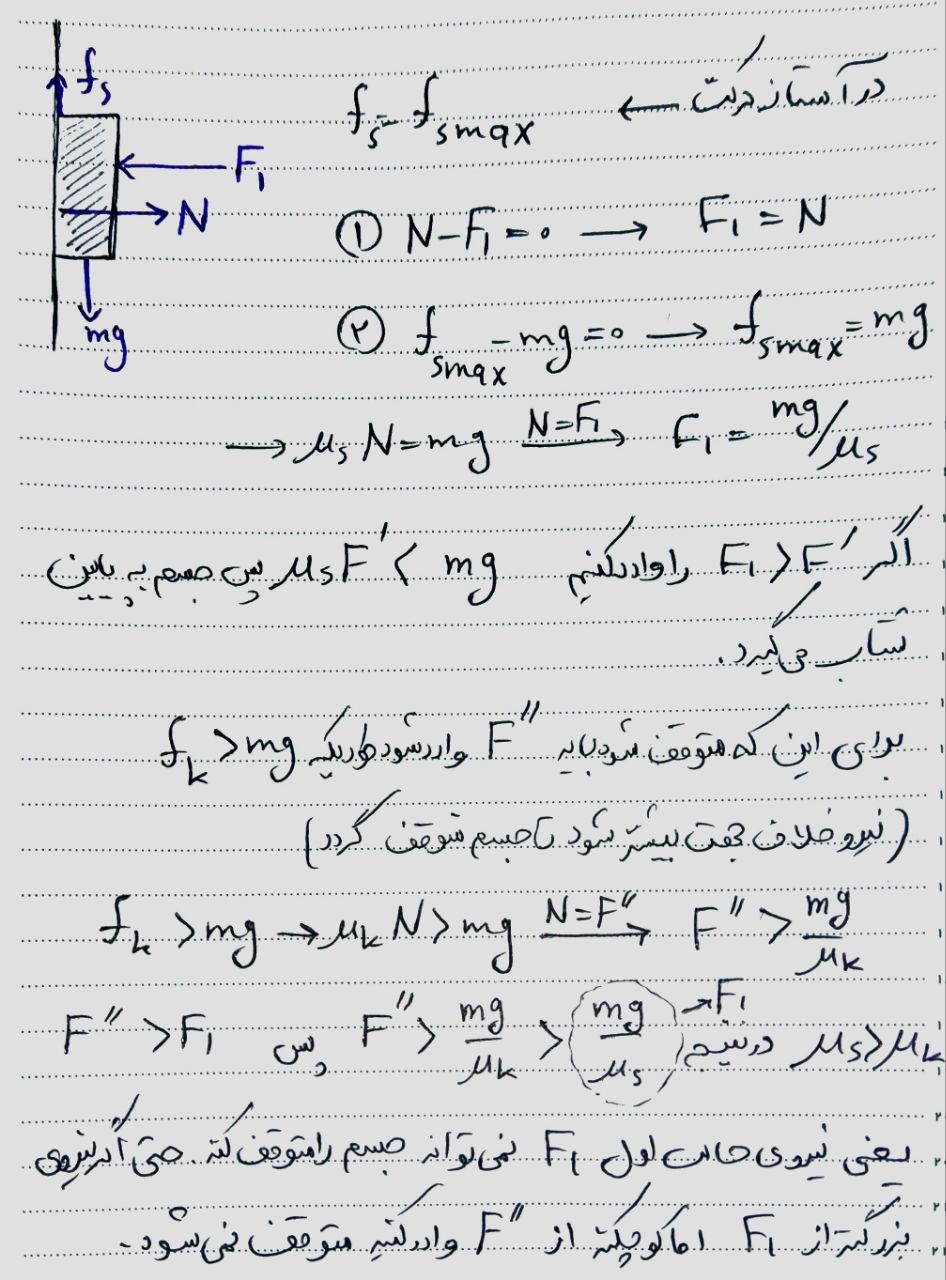 در آستانه حرکت ← fs = fsmax
fs
F₁
N
mg
① N-F₁=۰ → F₁ = N
② fsmax - mg=۰ → fsmax = mg
→ μs N=mg N=F₁→ F₁ = mg/μs
اگر F₁>F′ را وارد کنیم μsF′ < mg پس جسم به پایین
شتاب می‌گیرد.
برای این که متوقف شود باید F″ وارد شود طوریکه fk > mg
(نیرو خلاف جهت بیشتر شود تا جسم متوقف گردد)
fk > mg → μk N > mg N=F″→ F″ > mg/μk
μs>μk درنتیجه F″ > mg/μk > mg/μs →F₁ پس F″ > F₁
یعنی نیروی حالت اول F₁ نمی‌تواند جسم را متوقف کند. حتی اگر نیروی
بزرگتر از F₁ اما کوچکتر از F″ وارد کنیم متوقف نمی‌شود.